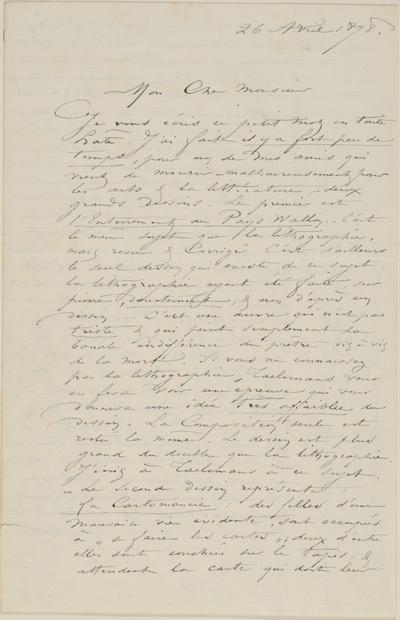 26 Avril 1878.
Mon Cher Monsieur
Je vous écris ce petit mot en toute
hate. J'ai faite il y a fort peu de
temps, pour un de mes amis qui
vient de mourir malheureusement pour
les arts & la littérature, deux
grands dessins. Le premier est
l'Enterrement au Pays Wallon. C'est
le même sujet que la lithographie,
mais revu & Corrigé C'est d'ailleurs
le seul dessin qui existe de ce sujet.
la lithographie ayant été faite sur
pierre, directement, & non d'après un
dessin. C'est une œuvre qui n'est pas
triste & qui peint simplement la
banale indifférence du pretre vis à vis
de la mort. Si vous ne connaissez
pas la lithographie, Taelemans vous
en fera voir une épreuve qui vous
donnera une idée très affaiblie du
dessin. La Composition seule est
restée la même. Le dessin est plus
grand du double que la lithographie
J'écris à Taelemans à ce sujet.
– Le Second dessin représente:
La Cartomancie: des filles d'une
mauvaise vie évidente, sont occupées
à "se faire les cartes"; deux d'entre
elles sont couchées sur le tapis, &
attendent la carte qui doit leur